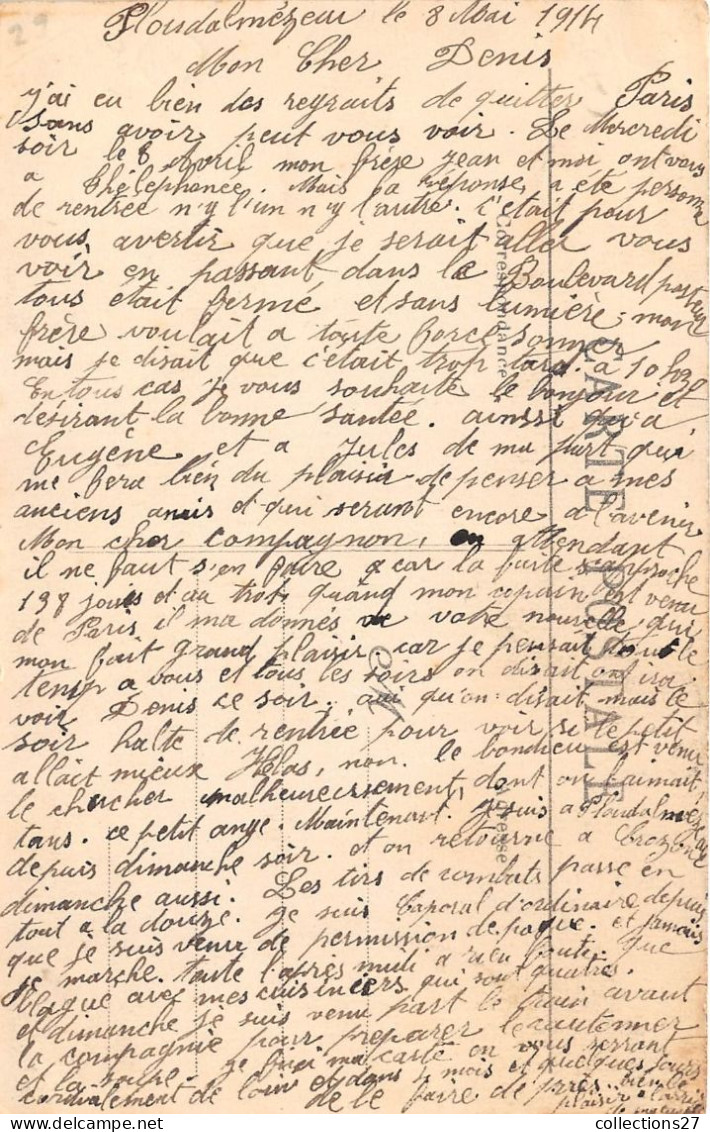 29
Ploudalmézeau le 8 Mai 1914
Mon Cher Denis
j'ai eu bien des reyraits de quitter Paris
sans avoir peut vous voir. Le Mercredi
soir le 8 Avril mon frère Jean et moi ont vous
a Théléphonée. Mais la réponse, a été personne
de rentrée n'y l'un n'y l'autre. C'était pour
vous avertir que je serait aller vous
voir en passant dans le Boulevard pasteur
tous était fermé et sans lumière, mon
frère voulait a toute force sonner
mais je disait que c'était trop tard. à 10 h 30
En tous cas je vous souhaite le bonjour et
désirant la bonne santée. ainssi qu'a
Eugène et a Jules de ma part qui
me fera bien du plaisir de penser a mes
anciens amis et qui seront encore a l'avenir
Mon cher compagnon, en attendant
il ne faut s'en faire car la fuite s'approche
198 jours et au trot, quand mon copain est venu
de Paris il m'a donnés de votre nouvelle qui
mon fait grand plaisir. car je pensait tout le
temp a vous et tous les soirs on disait on ira
voir Denis ce soir. qu'on disait mais le
soir halte de rentrée pour voir si le petit
allait mieux Hélas, non. le bondieu est venu
le chercher malheureusement, dont on l'aimait
tans. ce petit ange. Maintenant je suis a Ploudalmézeau
depuis dimanche soir. et on retourne a Crozon
dimanche aussi. Les tirs de combats passe en
tout a la douze. je suis Caporal d'ordinaire depuis
que je suis venu de permission de paque. et jamais
je marche. toute l'après midi a rien foutre. que
blague avec mes cuisiniers qui sont quatres.
et dimanche je suis venu part le train avant
la compagnie pour preparer le cantonner
et la soupe. je fini ma carte en vous serrant
cordialement de loin et dans mois et quelques jours
de le faire de près. bien le
plaisir a
Correspondance
CARTE POSTALE
Adresse
collections27